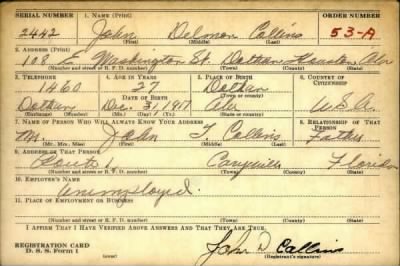 SERIAL NUMBER 1. NAME (Print) ORDER NUMBER
2442 John Delmon Collins 53-A
(First) (Middle) (Last)
2. ADDRESS (Print)
108 E. Washington St. Dothan Houston Ala
(Number and street or R. F. D. number) (Town) (County) (State)
3. TELEPHONE 4. AGE IN YEARS 5. PLACE OF BIRTH 6. COUNTRY OF CITIZENSHIP
1460 27 Dothan
DATE OF BIRTH (Town or county)
Dothan Dec. 31, 1917 Ala U.S.A.
(Exchange) (Number) (Mo.) (Day) (Yr.) (State or country)
7. NAME OF PERSON WHO WILL ALWAYS KNOW YOUR ADDRESS 8. RELATIONSHIP OF THAT PERSON
Mr. John T. Collins Father
(Mr., Mrs., Miss) (First) (Middle) (Last)
9. ADDRESS OF THAT PERSON
Route 1, Caryville Florida
(Number and street or R. F. D. number) (Town) (County) (State)
10. EMPLOYER'S NAME
Unemployed.
11. PLACE OF EMPLOYMENT OR BUSINESS
(Number and street or R. F. D. number) (Town) (County) (State)
I AFFIRM THAT I HAVE VERIFIED ABOVE ANSWERS AND THAT THEY ARE TRUE.
REGISTRATION CARD
D. S. S. Form 1 John D Collins
(Registrant's signature)